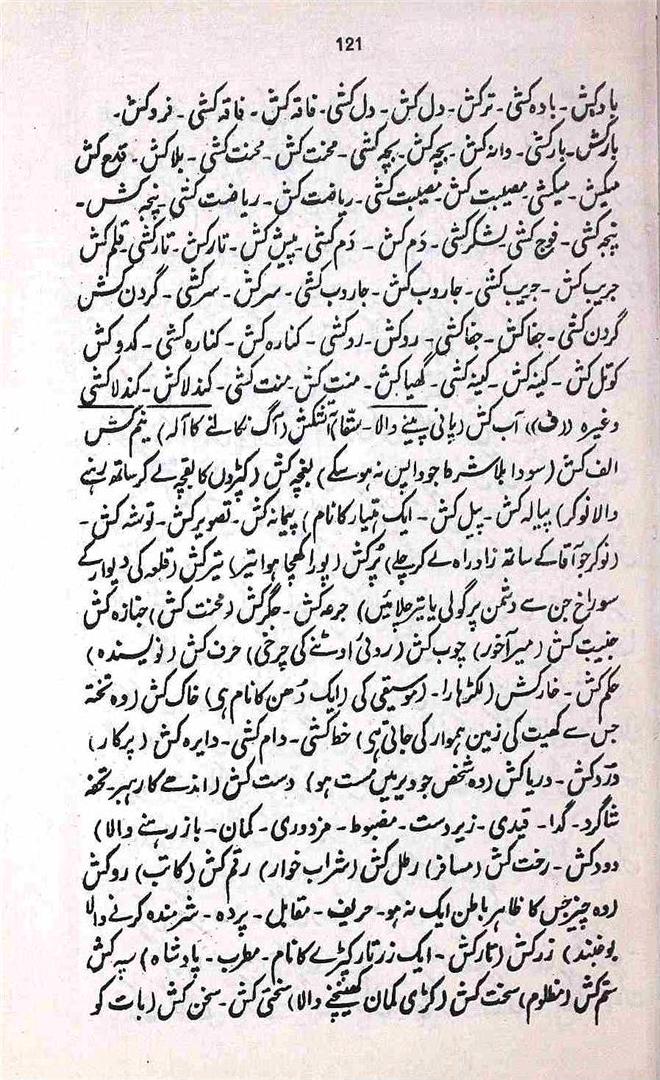 121
بادکش - بادہ کشی - ترکش - دل کش - دل کشی - فاقہ کش - فاقہ کشی - فروکش -
بارکش - بارکشی - دانہ کش - بچہ کش - بچہ کشی - محنت کش - محنت کشی - بلاکش - قدح کش
میکش - میکشی - مصیبت کش - مصیبت کشی - ریاضت کش - ریاضت کشی - پنجہ کش -
پنجہ کشی - فوج کشی - لشکر کشی - دَم کش - دَم کشی - پیش کش - تارکش - تارکشی - قلم کش
جریب کش - جریب کشی - جاروب کش - جاروب کشی - سرکش - سرکشی - گردن کش
گردن کشی - جفاکش - جفاکشی - روکش - روکشی - کنارہ کش - کنارہ کشی - کدوکش
کوتل کش - کینہ کش - کینہ کشی - گھیاکش - منت کش - منت کشی - کندلاکش - کندلاکشی
وغیرہ ((ف)) آب کش (پانی پینے والا - سقا) آتشکش (آگ نکالنے کا آلہ) نیم کش
الف کش (سودا بلاشرط جو واپس نہ ہوسکے) بغچہ کش (کپڑوں کا بقچہ لے کر ساتھ رہنے
والا نوکر) پیالہ کش - پیل کش - ایک ہتیار کا نام) پیمانہ کش - تصویر کش - توشہ کش -
(نوکر جو آقا کے ساتھ زادراہ لے کر چلے) پُرکش (پورا کھچا ہوا تیر) تیرکش (قلعہ کی دیوار کے
سوراخ جن سے دشمن پر گولی یا تیر چلائیں) جرعہ کش - جگرکش (محنت کش) جنازہ کش
جنیبت کش (میرآخور) چوب کش (روئی اوٹنے کی چرخی) حرف کش (نویسندہ)
حکم کش - خارکش (لکڑہارا - (موسیقی کی (ایک دُھن کا نام ہی) خاک کش (وہ تختہ
جس سے کھیت کی زمین ہموار کی جاتی ہی) خط کشی - دام کشی - دایرہ کش (پرکار)
دردکش - دریاکش (وہ شخص جو دیر میں مست ہو) دست کش (اندھے کا رہبر - تحفہ
شاگرد - گدا - قیدی - زیردست - مضبوط - مزدوری - کمان - باز رہنے والا)
دودکش - رخت کش (مسافر) رطل کش (شراب خوار) رقم کش (کاتب) روکش
(وہ چیز جس کا ظاہر باطن ایک نہ ہو - حریف - مقابل - پردہ - شرمندہ کرنے والا
زرکش (تارکش - ایک زرتار کپڑے کا نام - مطرب - پادشاہ) سپہ کش
ستم کش (مظلوم) سخت کش (کڑی کمان کھینچنے والا) سختی کش - سخن کش (بات کو